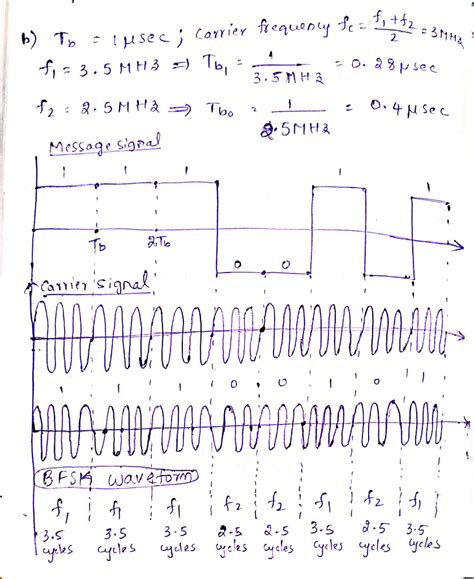 b) Tb = 1 μsec ; Carrier frequency fc = f1+f2/2 = 3MHz
f1 = 3.5 MHz ⇒ Tb1 = 1/3.5 MHz = 0.28 μsec
f2 = 2.5 MHz ⇒ Tb0 = 1/2.5 MHz = 0.4 μsec
Message signal
1 1 1 1 1
Tb 2Tb
0 0
Carrier signal
1 1 1 0 0 1 0 1
BFSK waveform
f1 f1 f1 f2 f2 f1 f2 f1
3.5 3.5 3.5 2.5 2.5 3.5 2.5 3.5
cycles cycles cycles cycles cycles cycles cycles cycles